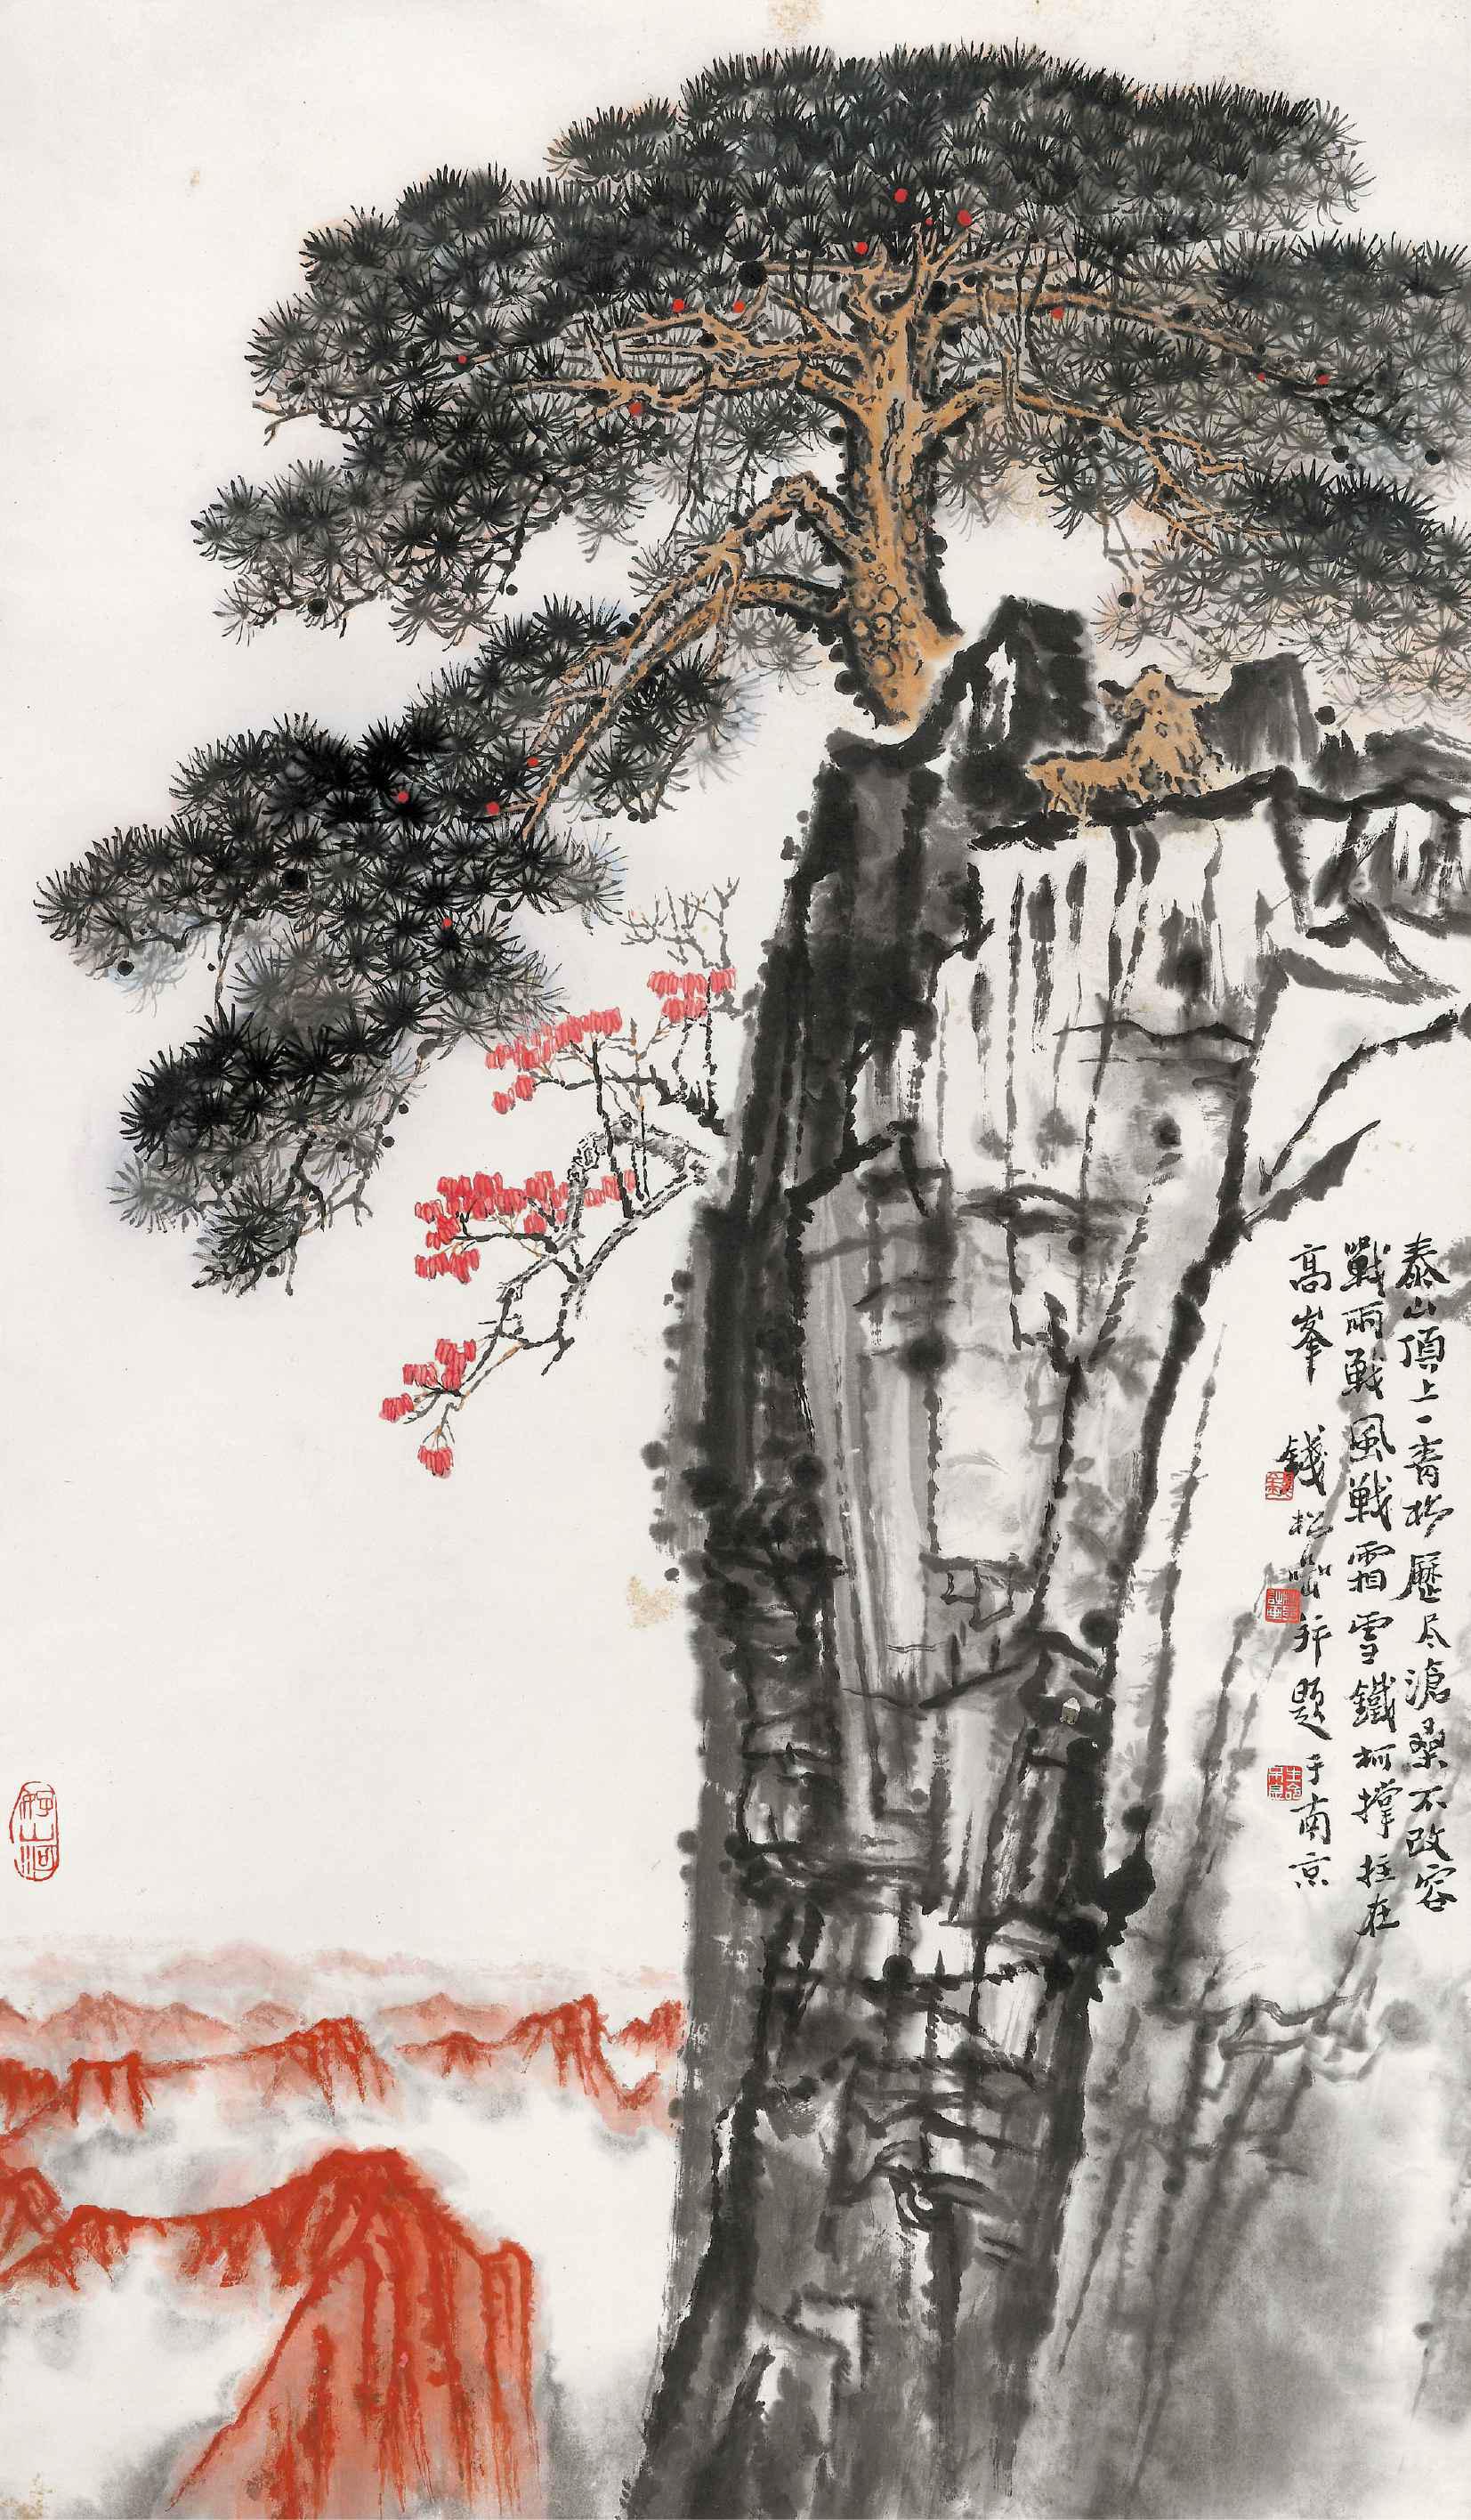 泰山頂上一青松歷尽滄桑不改容
戰雨戰風戰霜雪鐵柯撐拄在
高峯 錢松喦并題于南京
好山河